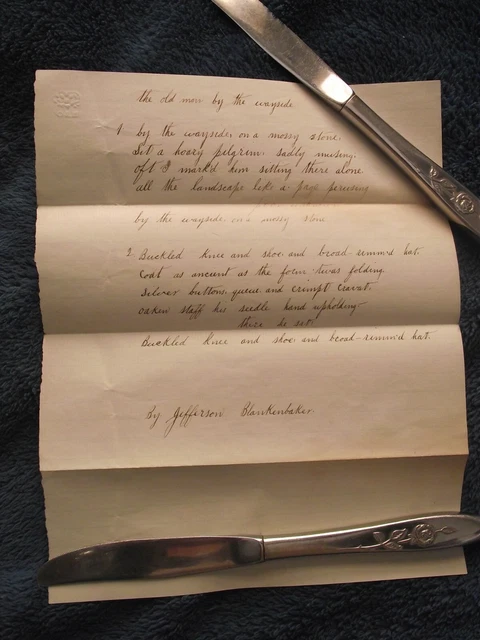 the old man by the wayside
1 by the wayside, on a mossy stone.
Sat a hoary pilgrim. sadly musing.
oft I mark'd him sitting there alone.
all the landscape like a page perusing
by the wayside, on a mossy stone
2 Buckled knee and shoe and broad-rimm'd hat.
Coat as ancient as the form 'twas folding.
Silver buttons, queue, and crimpt cravat.
oaken staff his feeble hand upholding
there he sat
Buckled knee and shoe and broad-rimm'd hat.
By Jefferson Blankenbaker